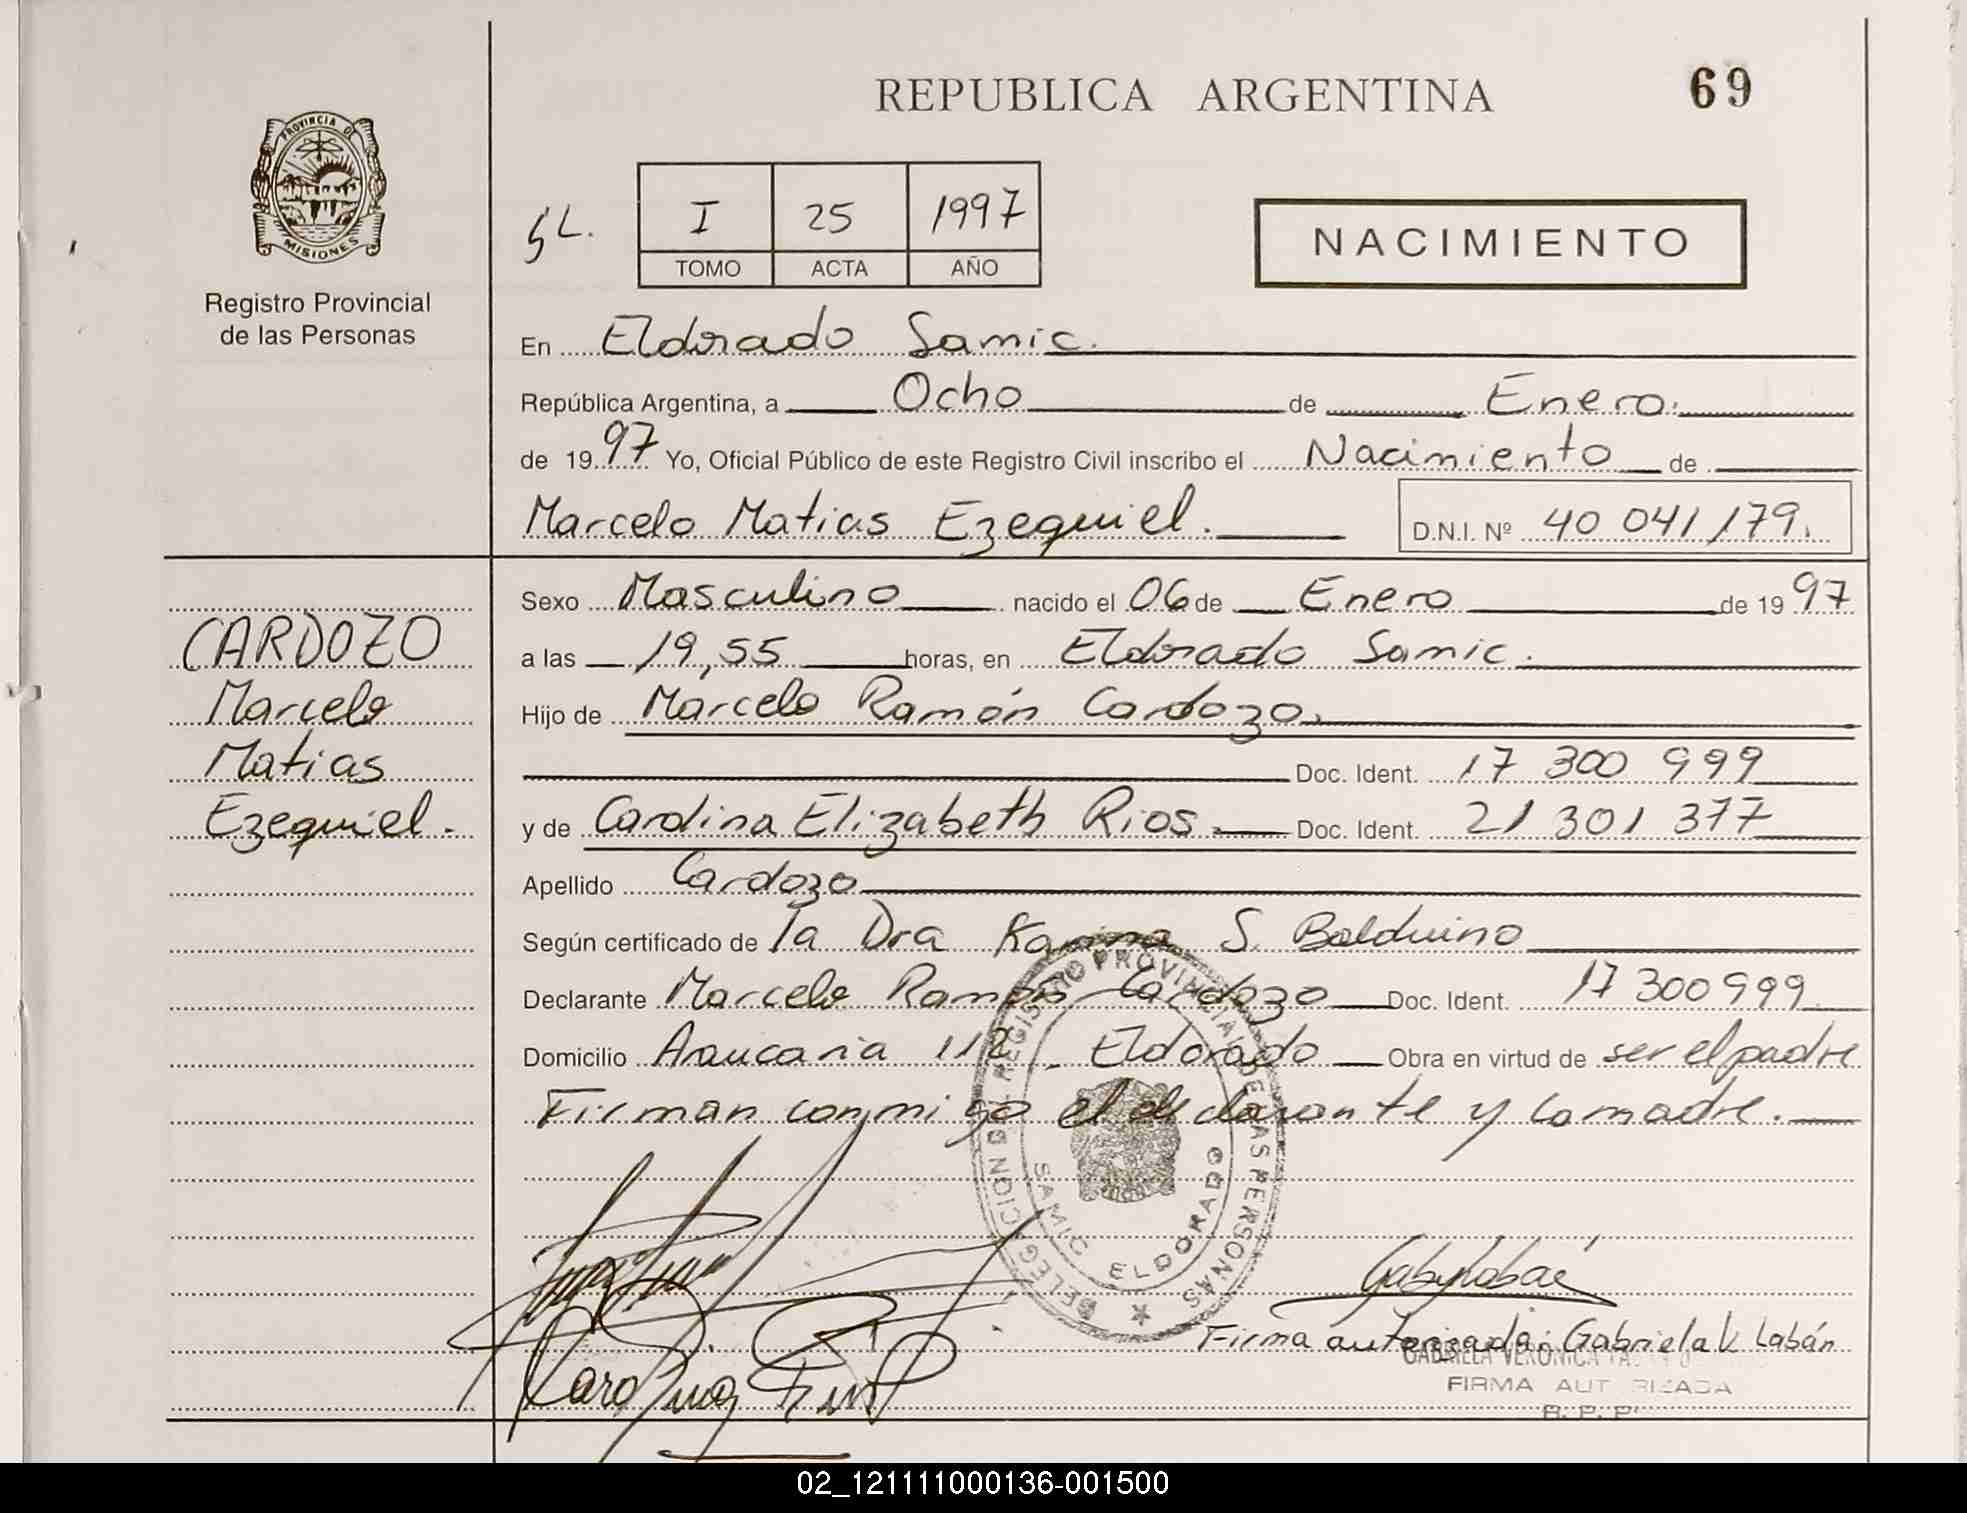 REPUBLICA ARGENTINA
69
PROVINCIA DE
MISIONES
Registro Provincial
de las Personas
I 25 1997
TOMO ACTA AÑO
NACIMIENTO
En Eldorado Samic.
República Argentina, a Ocho de Enero.
de 1997 Yo, Oficial Público de este Registro Civil inscribo el Nacimiento de
Marcelo Matias Ezequiel. D.N.I. Nº 40 041 179.
CARDOZO
Marcelo
Matias
Ezequiel.
Sexo Masculino nacido el 06 de Enero de 1997
a las 19,55 horas, en Eldorado Samic.
Hijo de Marcelo Ramón Cardozo.
Doc. Ident. 17 300 999
y de Carolina Elizabeth Rios. Doc. Ident. 21 301 377
Apellido Cardozo
Según certificado de la Dra Karina S. Balduino
Declarante Marcelo Ramón Cardozo Doc. Ident. 17 300 999
Domicilio Araucaria 112 Eldorado Obra en virtud de ser el padre
Firman conmigo el declarante y la madre.
DELEGACION DEL REGISTRO PROVINCIAL DE LAS PERSONAS
SAMIC ELDORADO
Firma autorizada: Gabriela V Labán
GABRIELA VERONICA
FIRMA AUTORIZADA
R. P. P
02_121111000136-001500